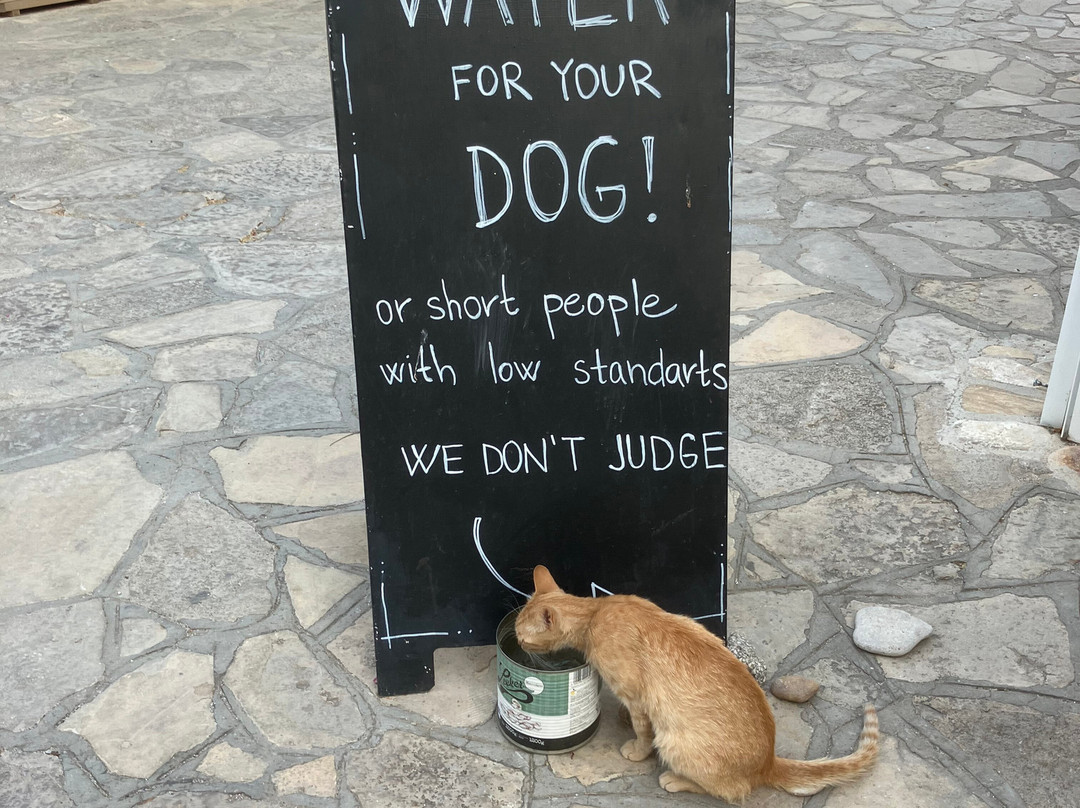 WATER
FOR YOUR
DOG!
or short people
with low standarts
WE DON'T JUDGE